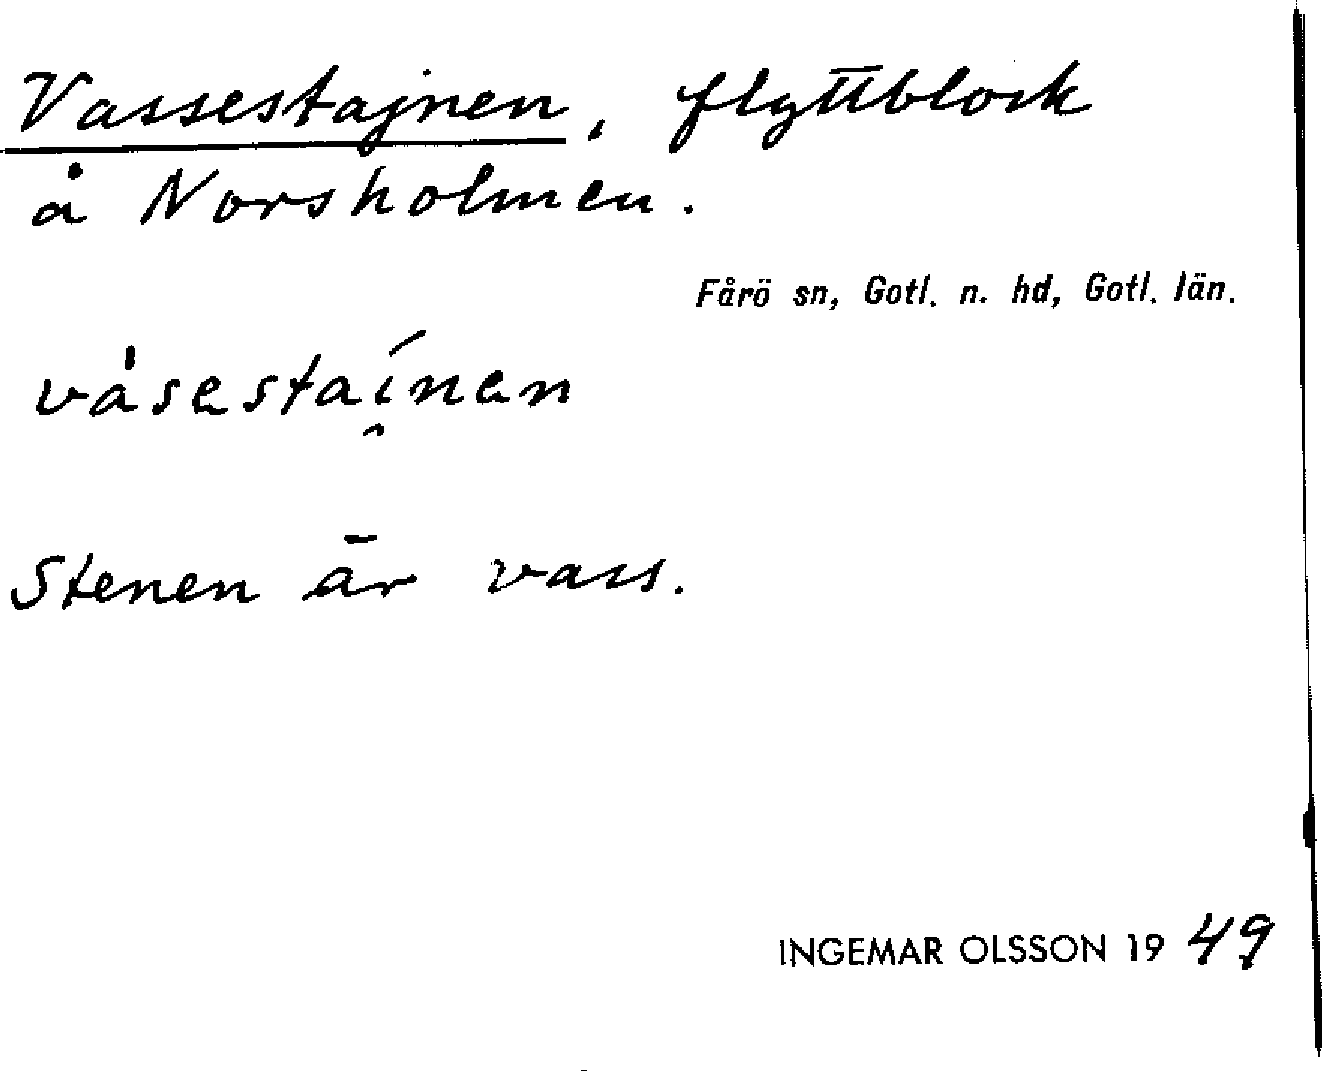 Vassestajnen, flyttblock
å Norsholmen.
Fårö sn, Gotl. n. hd, Gotl. län.
våsestai̯nen
Stenen är vass.
INGEMAR OLSSON 1949